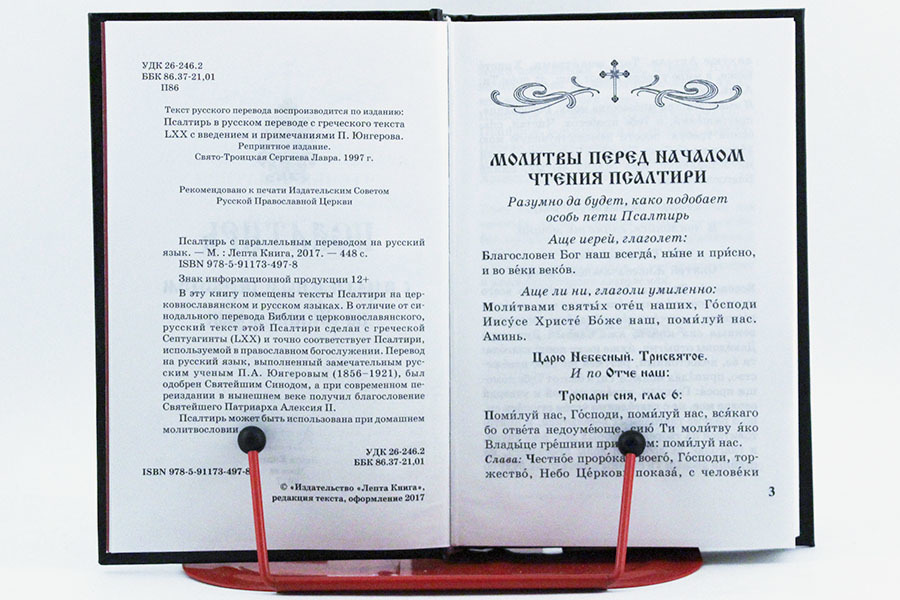 УДК 26-246.2
ББК 86.37-21,01
П86
Текст русского перевода воспроизводится по изданию:
Псалтирь в русском переводе с греческого текста
LXX с введением и примечаниями П. Юнгерова.
Репринтное издание.
Свято-Троицкая Сергиева Лавра. 1997 г.
Рекомендовано к печати Издательским Советом
Русской Православной Церкви
Псалтирь с параллельным переводом на русский
язык. — М. : Лепта Книга, 2017. — 448 с.
ISBN 978-5-91173-497-8
Знак информационной продукции 12+
В эту книгу помещены тексты Псалтири на цер-
ковнославянском и русском языках. В отличие от си-
нодального перевода Библии с церковнославянского,
русский текст этой Псалтири сделан с греческой
Септуагинты (LXX) и точно соответствует Псалтири,
используемой в православном богослужении. Перевод
на русский язык, выполненный замечательным рус-
ским ученым П.А. Юнгеровым (1856–1921), был
одобрен Святейшим Синодом, а при современном пе-
реиздании в нынешнем веке получил благословение
Святейшего Патриарха Алексия II.
Псалтирь может быть использована при домашнем
молитвословии
УДК 26-246.2
ББК 86.37-21,01
ISBN 978-5-91173-497-8
© «Издательство «Лепта Книга»,
редакция текста, оформление 2017
МОЛИТВЫ ПЕРЕД НАЧАЛОМ
ЧТЕНИЯ ПСАЛТИРИ
Разумно да будет, како подобает
особь пети Псалтирь
Аще иерей, глаголет:
Благословен Бог наш всегда́, ны́не и при́сно,
и во ве́ки веко́в.
Аще ли ни, глаголи умиленно:
Моли́твами святы́х оте́ц наших, Го́споди
Иису́се Христе́ Бо́же наш, поми́луй нас.
Аминь.
Царю Небесный. Трисвятое.
И по Отче наш:
Тропари сия, глас 6:
Поми́луй нас, Го́споди, поми́луй нас, вся́каго
бо отве́та недоуме́юще, сию́ Ти моли́тву я́ко
Влады́це гре́шнии при м: поми́луй нас.
Слава: Че́стно́е проро́ка воего́, Го́споди, тор-
жество́, Не́бо Це́рковь показа́, с челове́ки
3